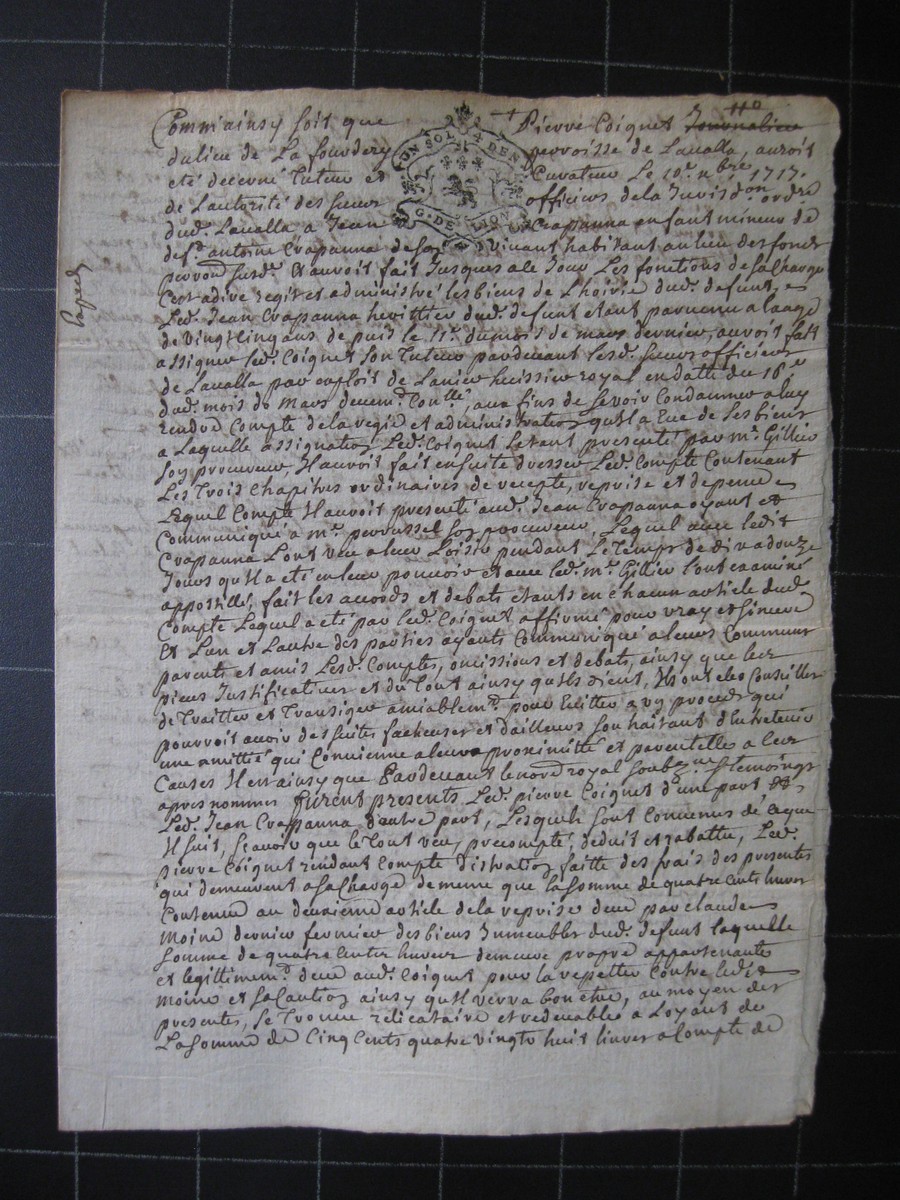 Comm'ainsy soit que Pierre Coignet Journalier
du lieu de La fourdery parroisse de Laualla, auroit
eté decerné Tuteur et Curateur Le 10e. nbre 1717.
de Lautorité des sieurs officiers dela Jurisdon. ordre
dud. Laualla a Jean Crapanna enfant mineur de
deft. antoine Crapanna de son viuant habitant au lieu des fonds
parron susd. Et auroit fait Jusques a ce Jour Les fonctions de sa charge
Cest adire regir et administré les biens de Lhoirie dud. defunt, et
Led. Jean Crapanna heritier dud. defunt etant paruenu a laage
de vingt cinq ans depuis le 11e. du mois de mars dernier, auroit fait
assigner led. Coignet son Tuteur pardeuant lesd. sieurs officiers
de Laualla par exploit de Lanier huissier royal en datte du 16e
dud. mois de Mars aux fins de se voir Condamner a luy
rendre Compte de la regie et administration quil a Eue de ses biens
a Laquelle assignation Led. Coignet setant presenté par me. Gillier
son procureur Il auroit fait ensuite dresser Led. Compte Contenant
Les Trois Chapitres ordinaires de recepte, reprise et depense
Lequel Compte Il auroit presenté aud. Jean Crapanna oyant et
Communiqué a me. perrussel son procureur, Lequel auec ledit
Crapanna Lont veu a leur Loisir pendant Le Temps de dix a douze
Jours quil a eté en leur pouuoir et auec led. me. Gillier lont examiné
appostillé, fait les accords et debats etants en chacun article dud.
Compte Lequel a eté par led. Coignet affirmé pour vray et sincere
Et Lun et Lautre des parties ayants Communiqué a leurs Communs
parents et amis Lesd. Comptes, omissions et debats, ainsy que les
pieces Justificatiues et du Tout ainsy quils dient, Ils ont eté Conseillés
de Traitter et Transiger amiablemt. pour Euitter a vn proces qui
pourroit auoir des suites facheuses et dailleurs souhaitant dentretenir
une amittié qui Conuienne a leur proximitté et parentelles a leur
Causes Il en ainsy que Pardeuant le nore. royal soubzne. & temoings
apres nommés furent presents Led. pierre Coignet d'une part
Led. Jean Crapanna d'autre part, Lesquels sont Conuenus de ce que
sensuit, scauoir que le Tout veu, precompté, deduit et rabattu, Led.
pierre Coignet rendant Compte distration faitte des frais des presentes
qui demeurent a sa charge de meme que la somme de quatre cents liures
Contenue au deuxieme article de la reprise deue par claude
Moine dernier fermier des biens Immeubles dud. defunt laquelle
somme de quatre cents liures demeure propre appartenante
et legittimemt. deue aud. Coignet pour la reppetter Contre ledit
Moine et sa Caution ainsy quil verra bon etre, au moyen des
presentes, se Trouue relicataire et redeuable a Loyant de
La somme de Cinq Cents quatre vingts huit liures a Compte de